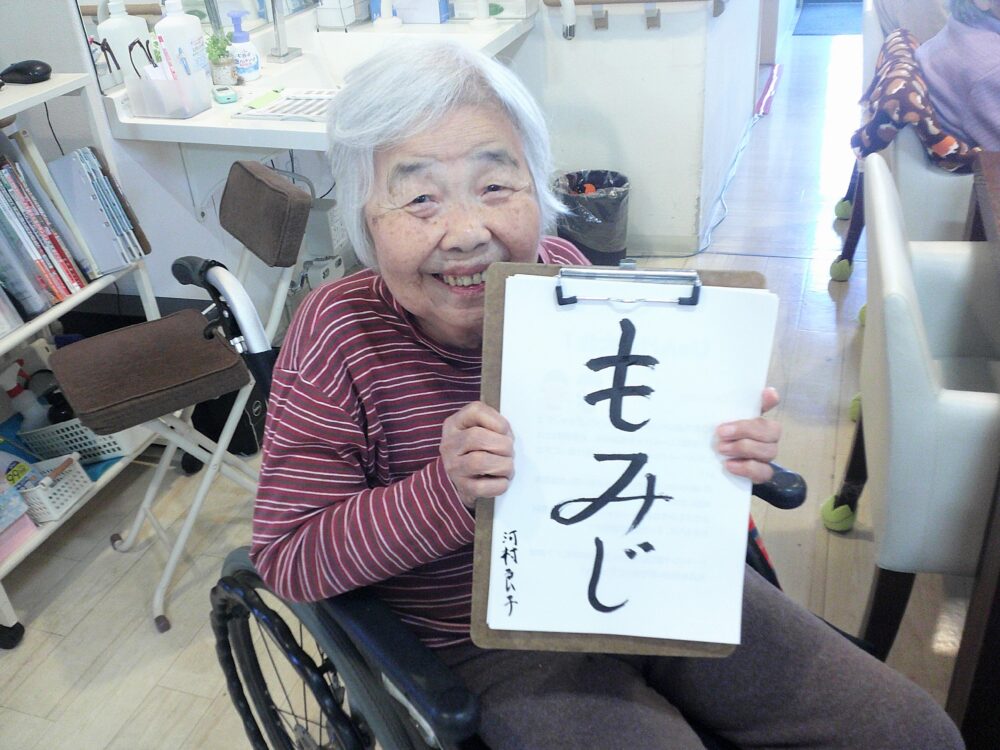 もみじ
河村良子